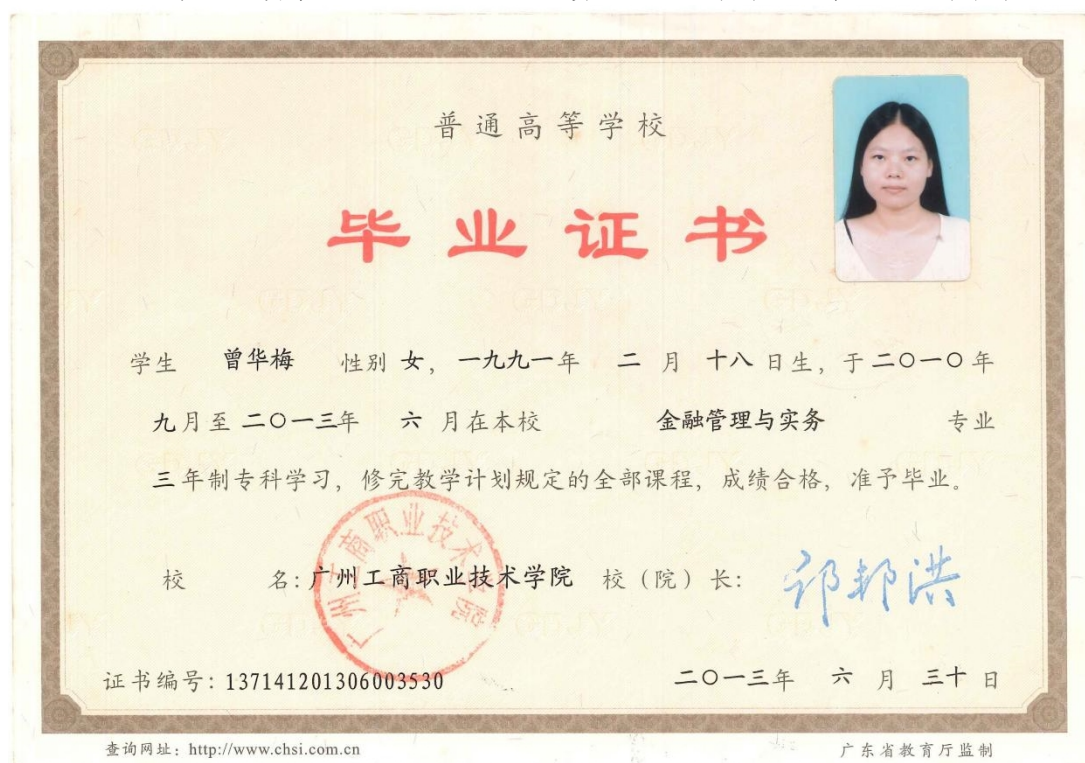 普通高等学校
毕业证书
学生 曾华梅 性别 女，一九九一年 二 月 十八 日生，于二〇一〇年
九月至 二〇一三年 六 月在本校 金融管理与实务 专业
三年制专科学习，修完教学计划规定的全部课程，成绩合格，准予毕业。
广州工商职业技术学院
校 名：广州工商职业技术学院 校（院）长：
证书编号：137141201306003530 二〇一三年 六 月 三十 日
查询网址：http://www.chsi.com.cn 广东省教育厅监制